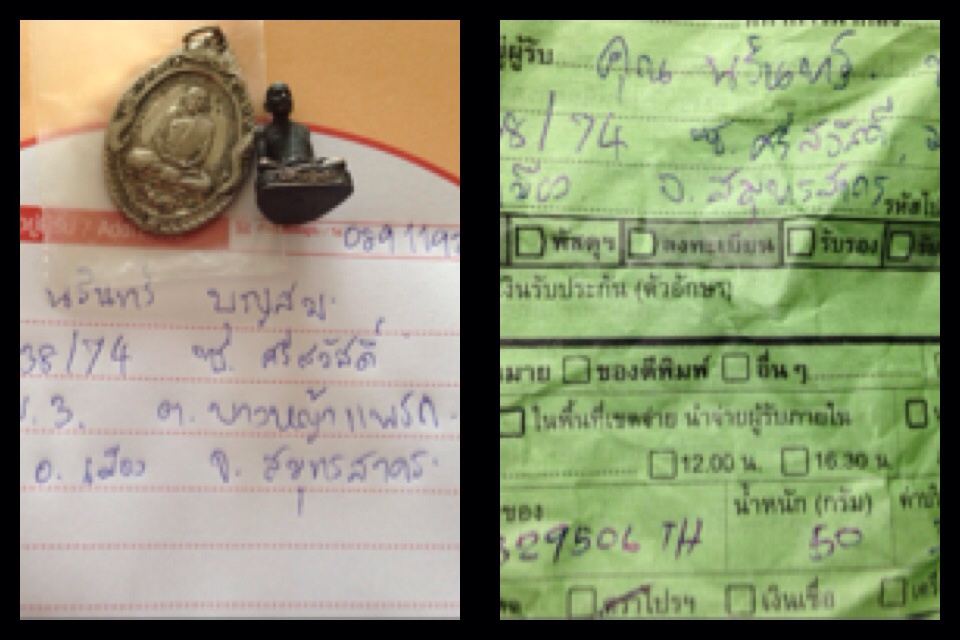 089 119
นรินทร์ บุญสม
38/74 ซ. ศรีสวัสดิ์
ม. 3. ต. บางหญ้าแพรก.
อ. เมือง จ. สมุทรสาคร.
ผู้รับ คุณ นรินทร์.
8/74 ซ ศรีสวัสดิ์,
เมือง จ. สมุทรสาคร รหัสไป
พัสดุฯ ลงทะเบียน รับรอง
เงินรับประกัน (ตัวอักษร)
หมาย ของตีพิมพ์ อื่น ๆ
ในพื้นที่เขตจ่าย นำจ่ายผู้รับภายใน
12.00 น. 16.30 น.
ของ น้ำหนัก (กรัม)
29506 TH 50
เงินเชื่อ